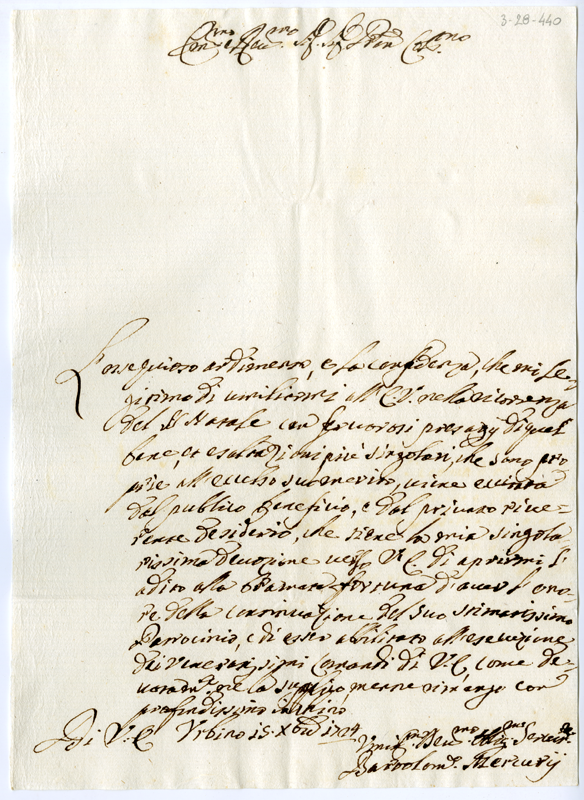 3-28-440
Em.mo e Rev.mo Sig. Sig. P̃ron Col.mo
L'ossequioso ardimento, e la confidenza, che mi le-
gitima di umiliarmi all'E.V. nella ricorrenza
del S. Natale con fervorosi presagij di quel
bene, et esaltazioni più singolari, che sono pro
prie all'eccelso suo merito, viene eccitata
dal publico beneficio, e dal privato rive-
rente desiderio, che tiene la mia singola
rissima devozione verso V.E. di aprirmi l'
adito alla bramata fortuna d'aver l'ono-
re della continuazione del suo stimatissimo
Patrocinio, e di esser abilitato all'esecuzione
dei veneratissimi comandi di V.E, come de-
mente rimango con
profondissimo inchino
Di V.E. Urbino 15 Xbre 1724
Um.mo Dev.mo Servit.re
Bartolom.o Mercurij